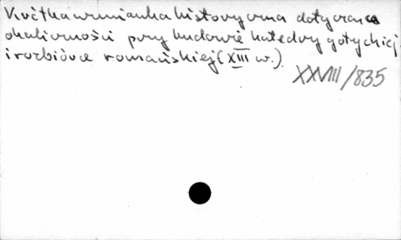 Krótka wzmianka historyczna dotycząca
okoliczności przy budowie katedry gotyckiej
i rozbiórce romańskiej (XIII w.).
XXVIII/835